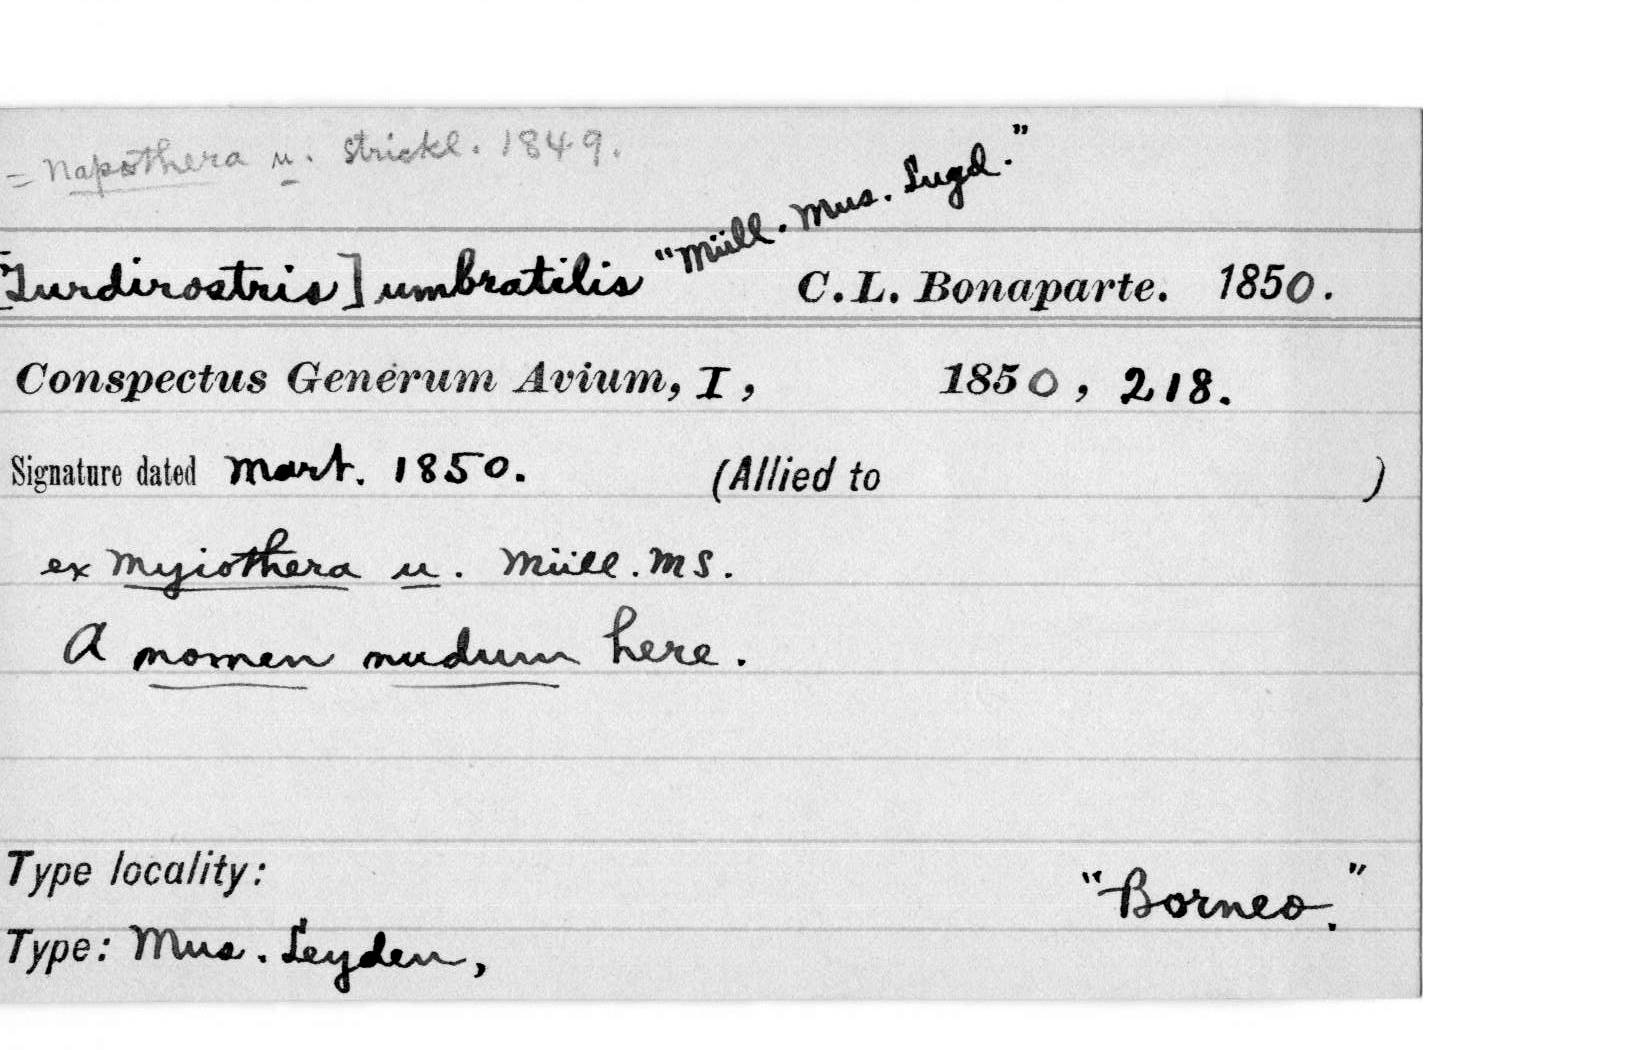 = Napothera u. Strickl. 1849.
[Turdirostris] umbratilis "Müll. Mus. Lugd." C. L. Bonaparte. 1850.
Conspectus Generum Avium, I, 1850, 218.
Signature dated Mart. 1850. (Allied to )
ex Myiothera u. Müll. MS.
A nomen nudum here.
Type locality: "Borneo."
Type: Mus. Leyden,